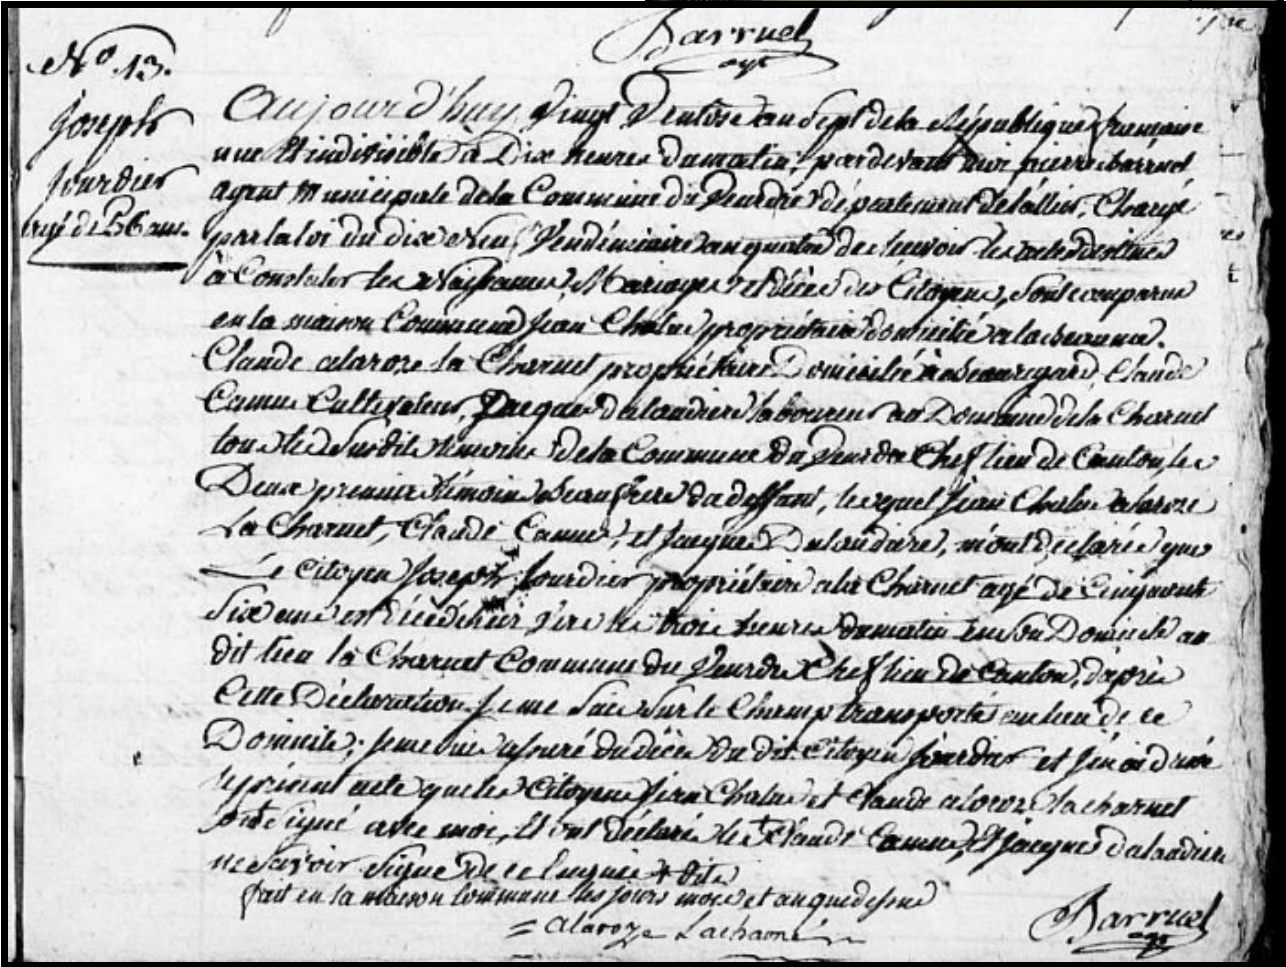 Barruel
agt
No. 13.
Joseph
Jourdier
agé de 56 ans.
Aujourd'huy Vingt Ventose an Sept de la République française
une et indivisible à Dix heures du matin, pardevant moi pierre barruel
agent Municipale de la Commune du Veurdre département de l'allier, Chargé
par la loi du dix Neuf Vendémiaire an quatre de recevoir les actes destinés
à Constater les Naissances, Mariages et décès des Citoyens, sont comparus
en la maison Commune Jean Chalus propriétaire domicilié a la
Claude alaroze la Charnet propriétaire Domicilié à beauregard, Claude
Camus Cultivateur, Jacques dalaudiere laboureur au Domaine de la Charnet
tous les Susdits témoins de la Commune du Veurdre Chef lieu de Canton, les
Deux premiers témoins beaufrere du deffunt, lesquel Jean Chalus alaroze
La Charnet, Claude Camus, et Jacques Dalaudiere, m'ont déclarés que
Le Citoyen Joseph Jourdier propriétaire a la Charnet agé de Cinquante
Six ans est décédé hier Vers les trois heures du matin en son Domicile au
dit lieu la Charnet Commune du Veurdre Chef lieu de Canton, d'après
Cette Déclaration Je me Suis Sur le Champ transporté au lieu de ce
Domicile, Je me suis assuré du décès du dit Citoyen Jourdier et J'en ai dressé
le présent acte que les Citoyens Jean Chalus et Claude alaroze la charnet
ont Signé avec moi, Et ont déclaré les Claude Camus, Et Jacques dalaudiere
ne Savoir Signer de ce Enquis +
fait en la maison Commune les Jours mois et an que dessus
= alaroze Lacharné
Barruel
agt